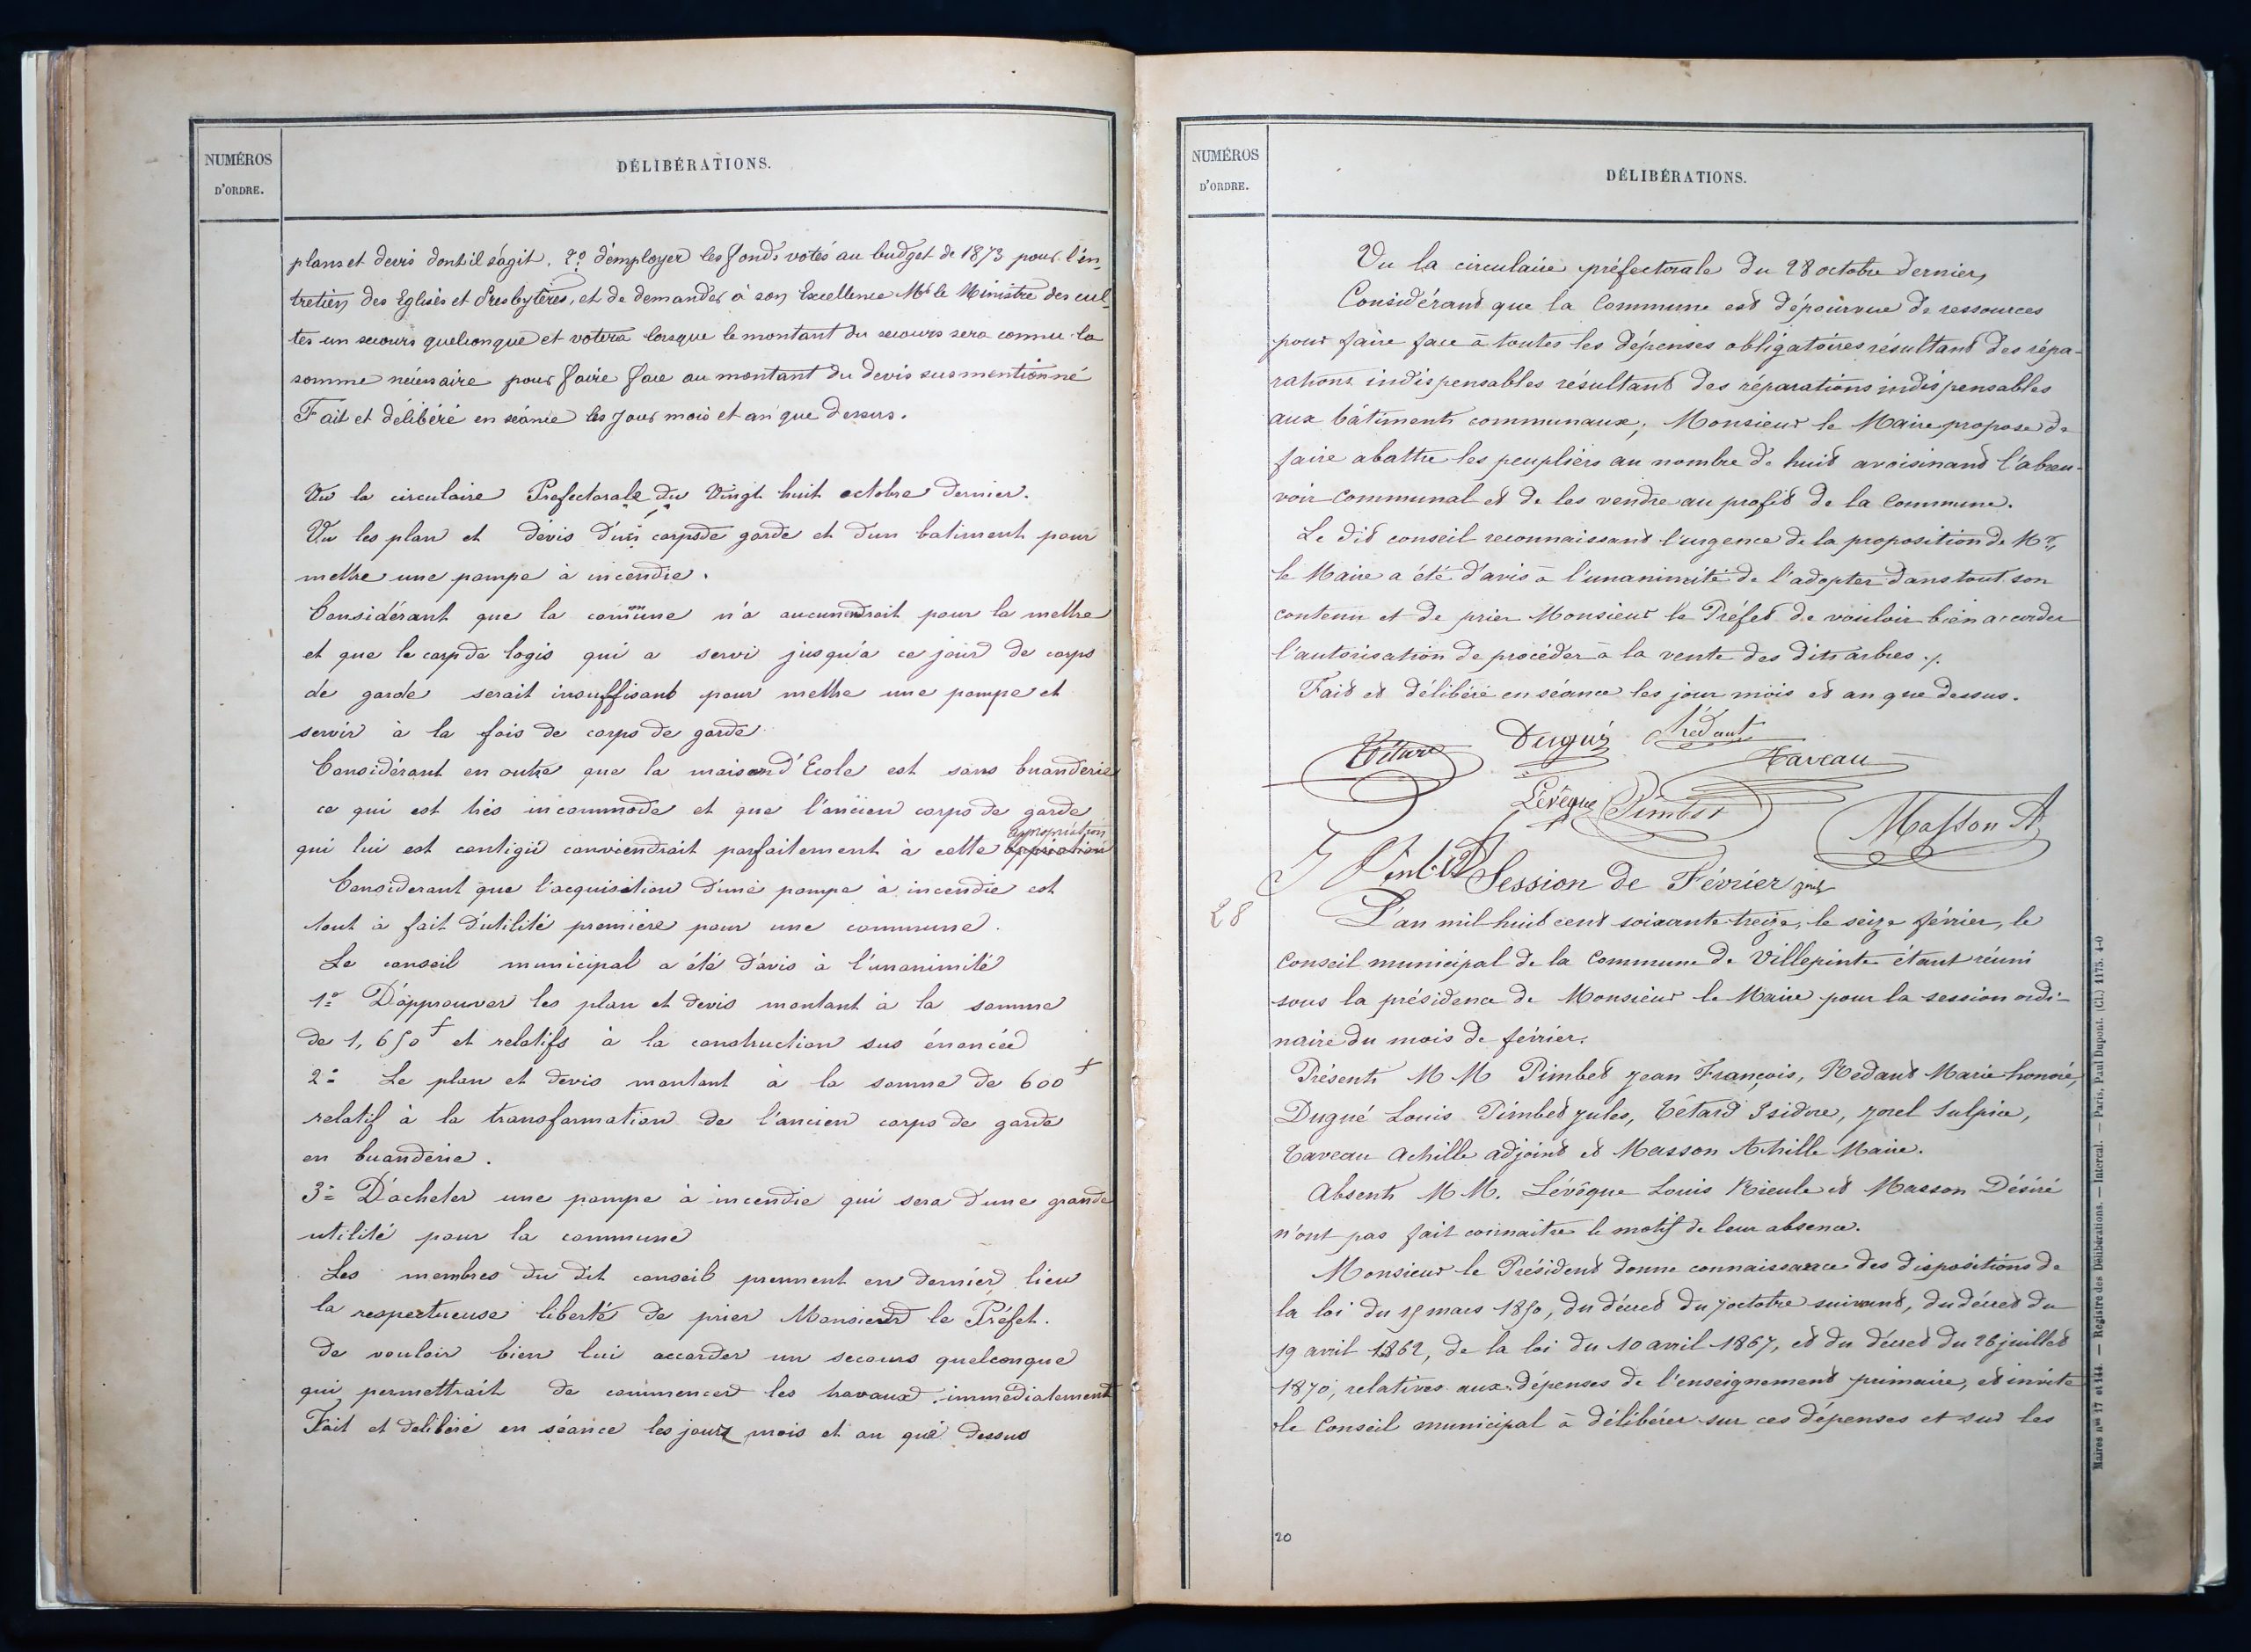 NUMÉROS
D'ORDRE.
DÉLIBÉRATIONS.
plans et devis dont il s'agit. 2º d'employer les fonds votés au budget de 1873 pour l'en-
tretien des Eglises et Presbytères, et de demander à son Excellence Mr le Ministre des cul-
tes un secours quelconque et votera lorsque le montant du secours sera connu la
somme nécessaire pour faire face au montant du devis susmentionné
Fait et délibéré en séance les jour mois et an que dessus.
Vu la circulaire Prefectorale du Vingt huit octobre dernier.
Vu les plan et dévis d'un corps de garde et d'un batiment pour
mettre une pompe à incendie.
Considérant que la commune n'a aucun endroit pour la mettre
et que le corp de logis qui a servi jusqu'à ce jour de corps
de garde serait insuffisant pour mettre une pompe et
servir à la fois de corps de garde
Considérant en outre que la maison d'Ecole est sans buanderie
ce qui est très incommode et que l'ancien corps de garde
qui lui est contigu conviendrait parfaitement à cette appropriation
Considerant que l'acquisition d'une pompe à incendie est
tout à fait d'utilité première pour une commune.
Le conseil municipal a été d'avis à l'unanimité
1º D'approuver les plan et devis montant à la somme
de 1,650f et relatifs à la construction sus énoncée
2º Le plan et devis montant à la somme de 600f
relatif à la transformation de l'ancien corps de garde
en buanderie.
3º D'acheter une pompe à incendie qui sera d'une grande
utilité pour la commune
Les membres du dit conseil prennent en dernier lieu
la respectueuse liberté de prier Monsieur le Préfet.
de vouloir bien lui accorder un secours quelconque
qui permettrait de commencer les travaux immédiatement
Fait et deliberé en séance les jours mois et an que dessus
NUMÉROS
D'ORDRE.
DÉLIBÉRATIONS.
Vu la circulaire préfectorale du 28 octobre dernier,
Considérant que la Commune est dépourvue de ressources
pour faire face à toutes les dépenses obligatoires résultant des répa-
rations indispensables résultant des réparations indispensables
aux bâtiments communaux; Monsieur le Maire propose de
faire abattre les peupliers au nombre de huit avoisinant l'abreu-
voir communal et de les vendre au profit de la Commune.
Le dit conseil reconnaissant l'urgence de la proposition de Mr
le Maire a été d'avis à l'unanimité de l'adopter dans tout son
contenu et de prier Monsieur le Préfet de vouloir bien accorder
l'autorisation de procéder à la vente des dits arbres ./.
Fait et délibéré en séance les jour mois et an que dessus.
Tétard Dugué Rédaut Taveau
Lévêque Pimbet Masson A
J Pimbet
Session de Février
28
L'an mil huit cent soixante-treize, le seize février, le
Conseil municipal de la Commune de Villepinte étant réuni
sous la présidence de Monsieur le Maire pour la session ordi-
naire du mois de février.
Présents MM Pimbet Jean François, Redaut Marie honoré,
Dugué Louis Pimbet Jules, Tétard Isidore, Jorel Sulpice,
Taveau Achille adjoint et Masson Achille Maire.
Absents MM. Lévêque Louis Rieule et Masson Désiré
n'ont pas fait connaitre le motif de leur absence.
Monsieur le Président donne connaissance des dispositions de
la loi du 15 mars 1850, du décret du 7 octobre suivant, du décret du
19 avril 1862, de la loi du 10 avril 1867, et du décret du 26 juillet
1870, relatives aux dépenses de l'enseignement primaire, et invite
le Conseil municipal à délibérer sur ces dépenses et sur les
20
Maires nos 17 et 144. — Registre des Délibérations. — Intercal. — Paris, Paul Dupont. (Cl.) 1175. 4-0